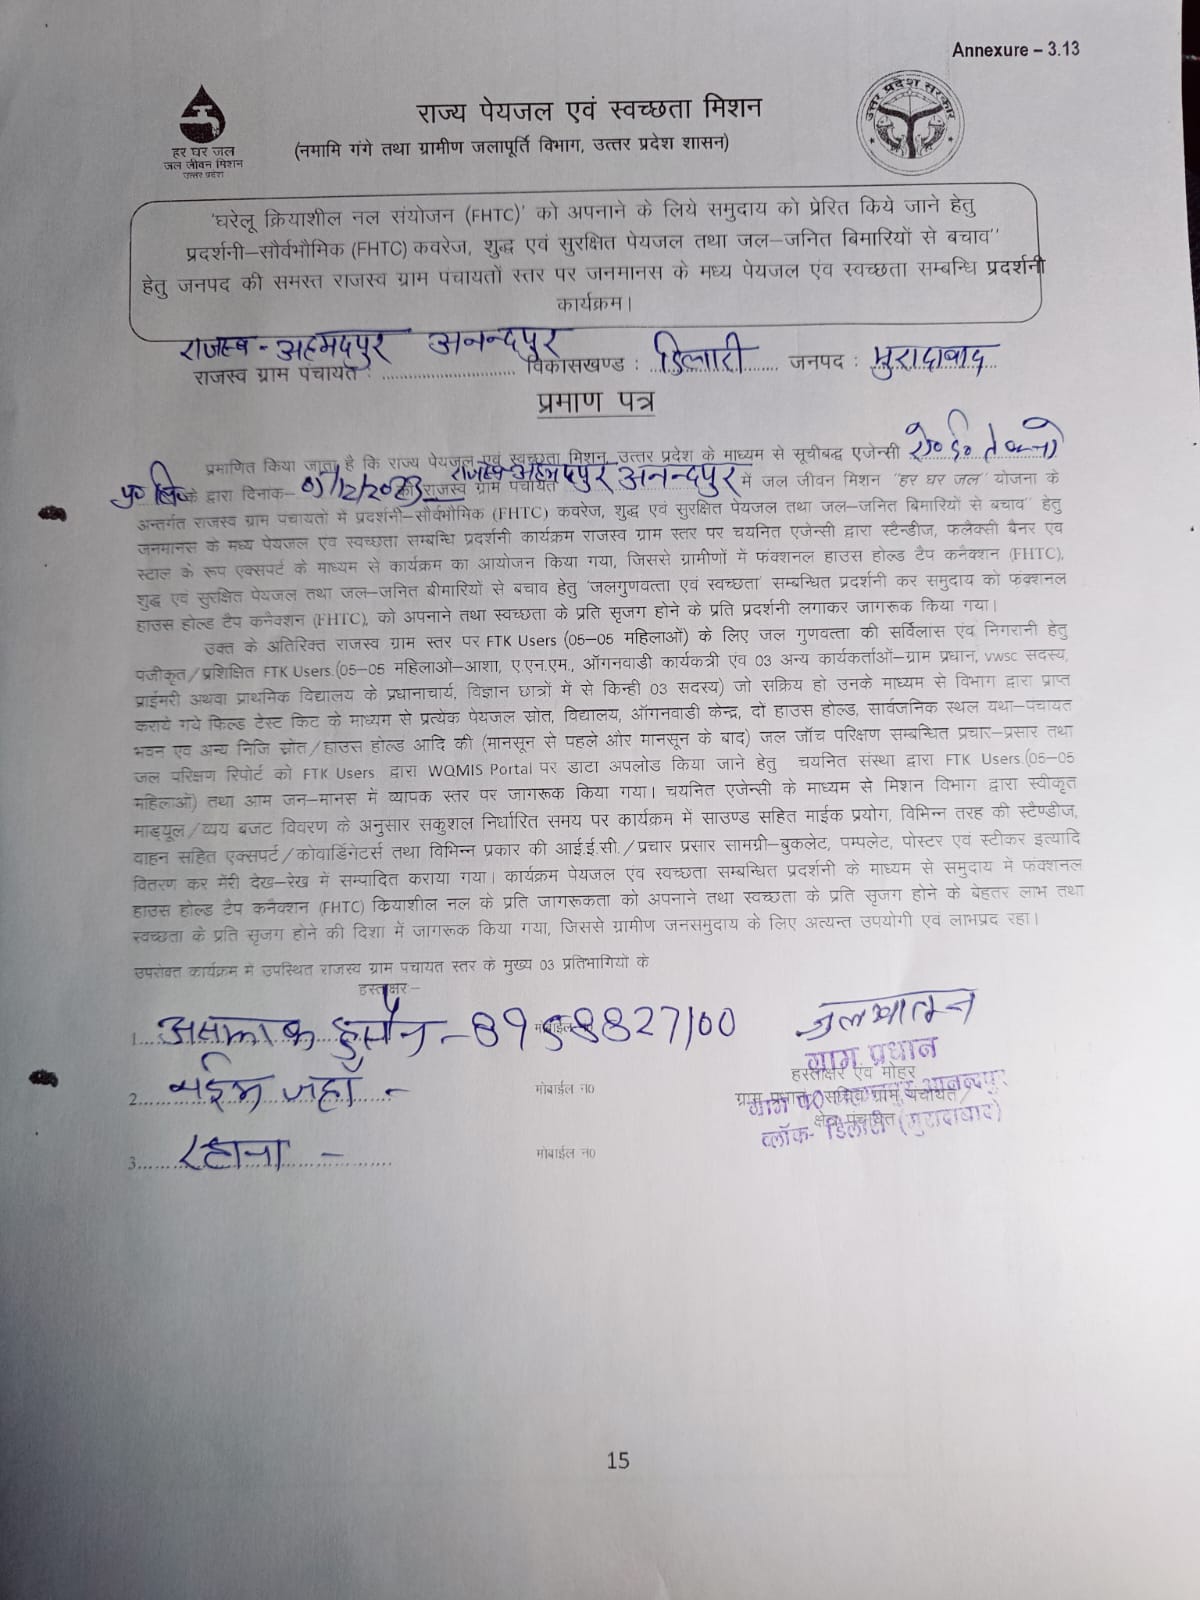 Annexure – 3.13
राज्य पेयजल एवं स्वच्छता मिशन
(नमामि गंगे तथा ग्रामीण जलापूर्ति विभाग, उत्तर प्रदेश शासन)
हर घर जल
जल जीवन मिशन
उत्तर प्रदेश
उत्तर प्रदेश सरकार
'घरेलू क्रियाशील नल संयोजन (FHTC)' को अपनाने के लिये समुदाय को प्रेरित किये जाने हेतु
प्रदर्शनी–सौर्वभौमिक (FHTC) कवरेज, शुद्ध एवं सुरक्षित पेयजल तथा जल–जनित बिमारियों से बचाव''
हेतु जनपद की समस्त राजस्व ग्राम पंचायतों स्तर पर जनमानस के मध्य पेयजल एंव स्वच्छता सम्बन्धि प्रदर्शनी
कार्यक्रम।
राजस्व - अहमदपुर आनन्दपुर
राजस्व ग्राम पंचायत : .............................. विकासखण्ड : डिलारी जनपद : मुरादाबाद
प्रमाण पत्र
प्रमाणित किया जाता है कि राज्य पेयजल एवं स्वच्छता मिशन, उत्तर प्रदेश के माध्यम से सूचीबद्ध एजेन्सी
के द्वारा दिनांक– 01/12/2023 को राजस्व ग्राम पंचायत राजस्व अहमदपुर आनन्दपुर में जल जीवन मिशन "हर घर जल" योजना के
अन्तर्गत राजस्व ग्राम पंचायतों में प्रदर्शनी–सौर्वभौमिक (FHTC) कवरेज, शुद्ध एवं सुरक्षित पेयजल तथा जल–जनित बिमारियों से बचाव" हेतु
जनमानस के मध्य पेयजल एंव स्वच्छता सम्बन्धि प्रदर्शनी कार्यक्रम राजस्व ग्राम स्तर पर चयनित एजेन्सी द्वारा स्टैन्डीज, फलैक्सी बैनर एंव
स्टाल के रूप एक्सपर्ट के माध्यम से कार्यक्रम का आयोजन किया गया, जिससे ग्रामीणों में फंक्शनल हाउस होल्ड टैप कनैक्शन (FHTC),
शुद्व एवं सुरक्षित पेयजल तथा जल–जनित बीमारियों से बचाव हेतु 'जलगुणवत्ता एवं स्वच्छता' सम्बन्धित प्रदर्शनी कर समुदाय को फंक्शनल
हाउस होल्ड टैप कनैक्शन (FHTC), को अपनाने तथा स्वच्छता के प्रति सृजग होने के प्रति प्रदर्शनी लगाकर जागरूक किया गया।
उक्त के अतिरिक्त राजस्व ग्राम स्तर पर FTK Users (05–05 महिलाओं) के लिए जल गुणवत्ता की सर्विलांस एंव निगरानी हेतु
पंजीकृत/प्रशिक्षित FTK Users.(05–05 महिलाओं–आशा, ए.एन.एम., ऑगनवाडी कार्यकत्री एंव 03 अन्य कार्यकर्ताओं–ग्राम प्रधान, vwsc सदस्य,
प्राईमरी अथवा प्राथमिक विद्यालय के प्रधानाचार्य, विज्ञान छात्रों में से किन्ही 03 सदस्य) जो सक्रिय हो उनके माध्यम से विभाग द्वारा प्राप्त
कराये गये फिल्ड टेस्ट किट के माध्यम से प्रत्येक पेयजल स्रोत, विद्यालय, ऑगनवाडी केन्द्र, दो हाउस होल्ड, सार्वजनिक स्थल यथा–पंचायत
भवन एंव अन्य निजि स्रोत/हाउस होल्ड आदि की (मानसून से पहले और मानसून के बाद) जल जॉच परिक्षण सम्बन्धित प्रचार–प्रसार तथा
जल परिक्षण रिपोर्ट को FTK Users द्वारा WQMIS Portal पर डाटा अपलोड किया जाने हेतु चयनित संस्था द्वारा FTK Users.(05–05
महिलाओं) तथा आम जन–मानस में व्यापक स्तर पर जागरूक किया गया। चयनित एजेन्सी के माध्यम से मिशन विभाग द्वारा स्वीकृत
माड्यूल/व्यय बजट विवरण के अनुसार सकुशल निर्धारित समय पर कार्यक्रम में साउण्ड सहित माईक प्रयोग, विभिन्न तरह की स्टैण्डीज,
वाहन सहित एक्सपर्ट/कोवार्डिनेटर्स तथा विभिन्न प्रकार की आई.ई.सी./प्रचार प्रसार सामग्री–बुकलेट, पम्पलेट, पोस्टर एवं स्टीकर इत्यादि
वितरण कर मेंरी देख–रेख में सम्पादित कराया गया। कार्यक्रम पेयजल एंव स्वच्छता सम्बन्धित प्रदर्शनी के माध्यम से समुदाय में फंक्शनल
हाउस होल्ड टैप कनैक्शन (FHTC) कियाशील नल के प्रति जागरूकता को अपनाने तथा स्वच्छता के प्रति सृजग होने के बेहतर लाभ तथा
स्वच्छता के प्रति सृजग होने की दिशा में जागरूक किया गया, जिससे ग्रामीण जनसमुदाय के लिए अत्यन्त उपयोगी एवं लाभप्रद रहा।
उपरोक्त कार्यक्रम में उपस्थित राजस्व ग्राम पंचायत स्तर के मुख्य 03 प्रतिभागियो के
हस्ताक्षर –
1. हुसैन - मोबाईल
2. नईम जहाँ - मोबाईल न0
3. रहाना - मोबाईल न0
ग्राम प्रधान
हस्ताक्षर एंव मोहर
ग्राम प्रधान/सचिव ग्राम पंचायत/
क्षेत्र पंचायत
आनन्दपुर
ब्लॉक- डिलारी (मुरादाबाद)
15